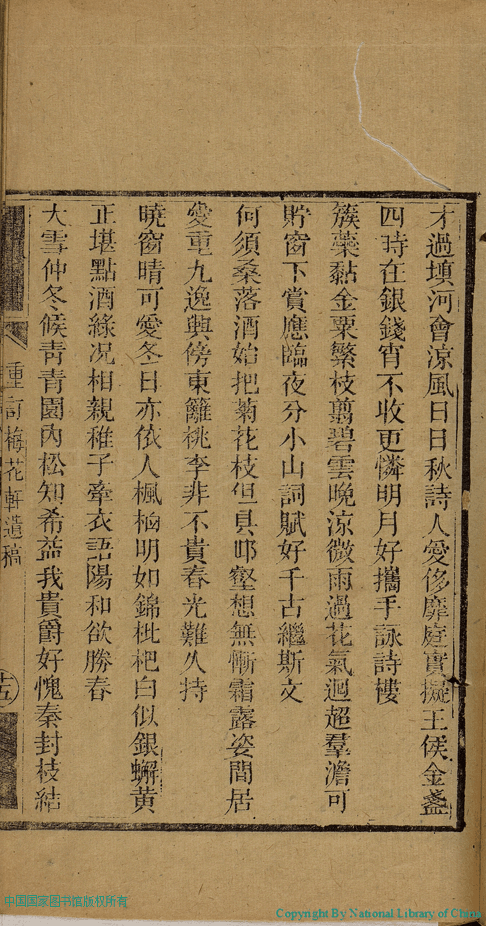 才過填河會涼風日日秋詩人愛侈靡庭實擬王侯金盞
四時在銀錢宵不收更憐明月好攜手詠詩樓
簇蘂黏金粟繁枝翦碧雲晚涼微雨過花氣迥超羣澹可
貯窗下賞應臨夜分小山詞賦好千古繼斯文
何須桑落酒始把菊花枝但具邱壑想無慚霜露姿閒居
愛重九逸興傍東籬桃李非不貴春光難久持
曉窗晴可愛冬日亦依人楓桕明如錦枇杷白似銀蠏黃
正堪點酒綠况相親稚子牽衣語陽和欲勝春
大雪仲冬候靑靑園內松知希益我貴爵好愧秦封枝結
重訂梅花軒遺稿
十五
中国国家图书馆版权所有
Copyright By National Library of China